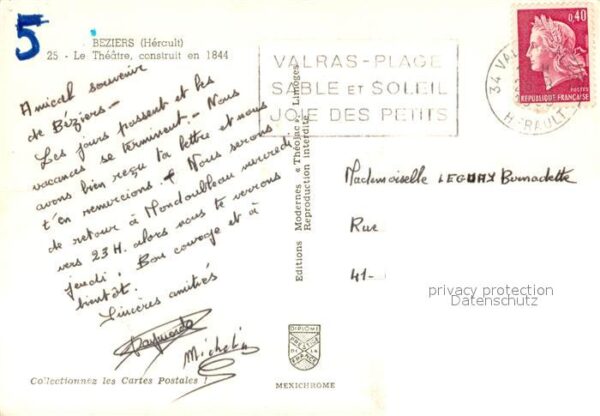 5
BEZIERS (Hérault)
25 - Le Théâtre, construit en 1844
Amical souvenir
de Béziers -
Les jours passent et les
vacances se terminent - Nous
avons bien reçu ta lettre et nous
t'en remercions. Nous serons
de retour à Mondoubleau mercredi
vers 23 H. alors nous te verrons
jeudi. Bon courage et à
bientôt.
Sincères amitiés
Raymonde
Michel
Collectionnez les Cartes Postales !
Editions Modernes « Théojac », Limoges
Reproduction interdite
DIPLÔME
PRESTIGE
DE LA
FRANCE
MEXICHROME
VALRAS-PLAGE
SABLE et SOLEIL
JOIE DES PETITS
34 VAL
HERAULT
0,40
POSTES
REPUBLIQUE FRANÇAISE
Mademoiselle LEGUAY Bernadette
Rue
41-
privacy protection
Datenschutz